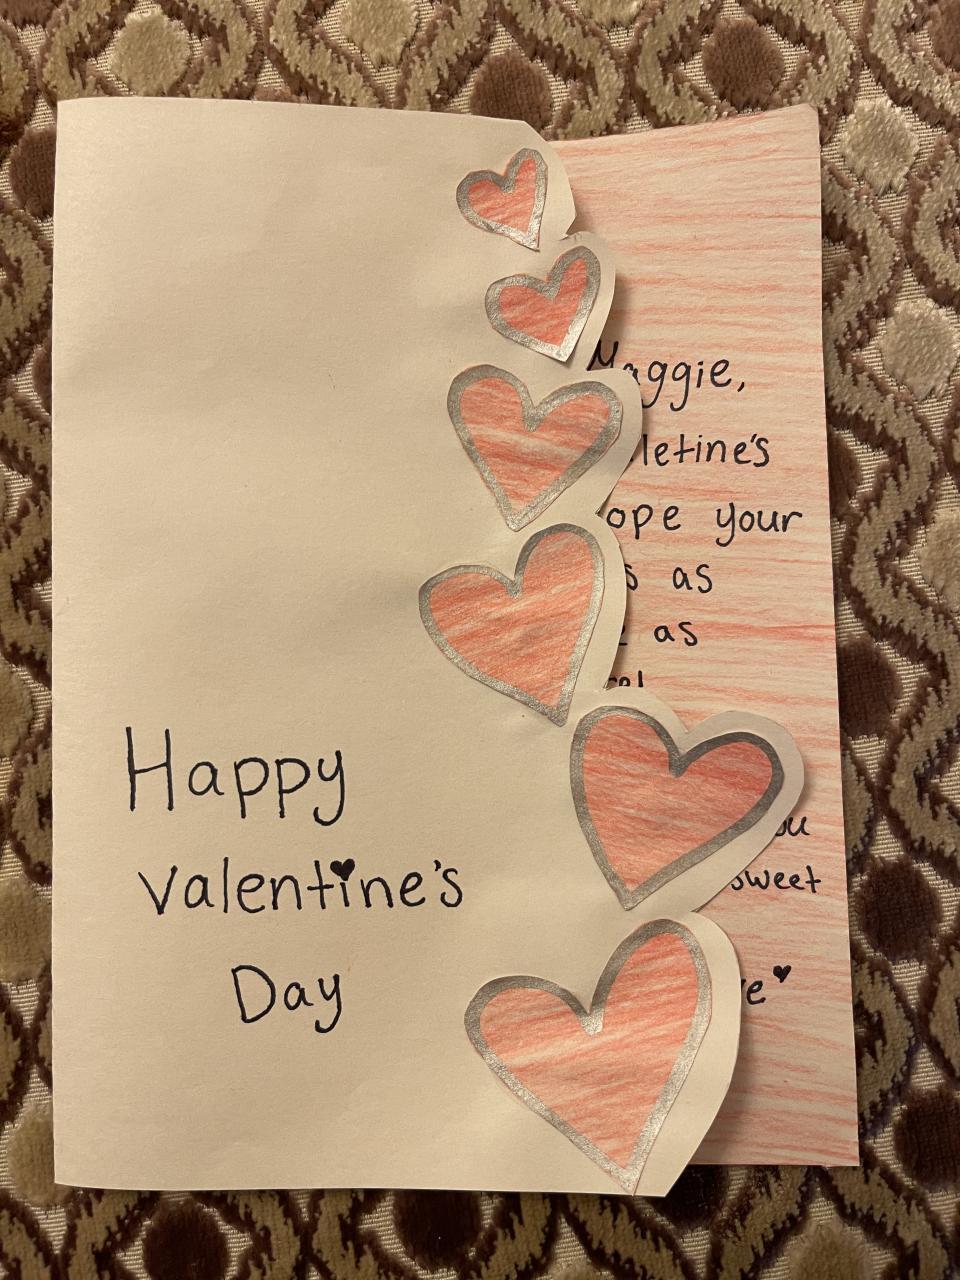 Happy
Valentine's
Day
Maggie,
letine's
ope your
s as
as
ou
sweet
e